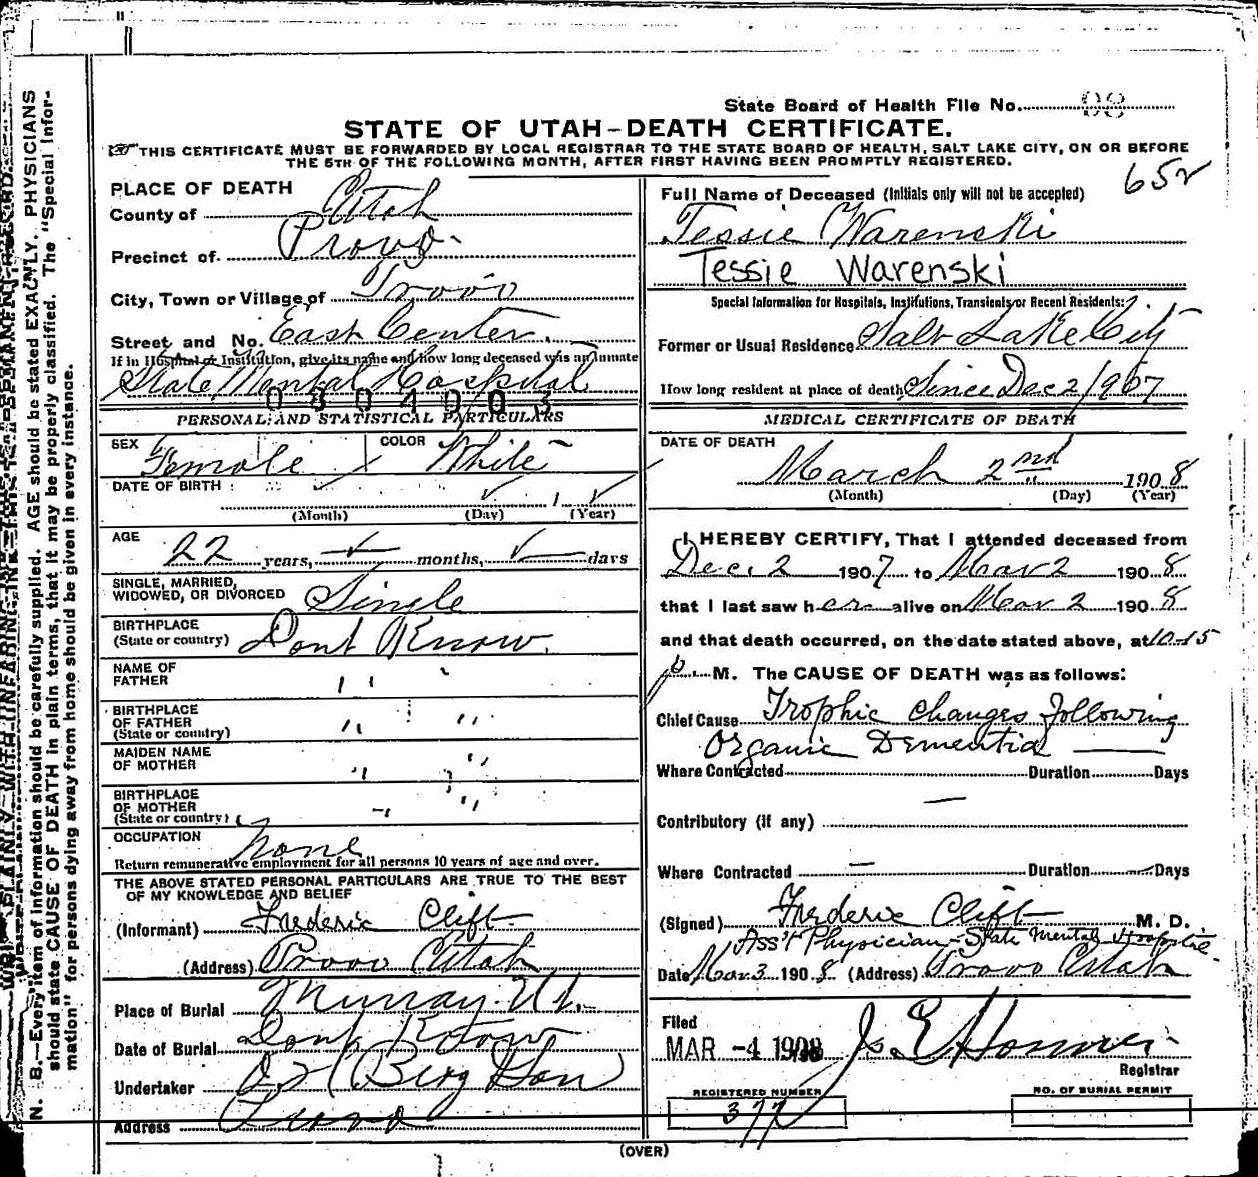 State Board of Health File No. 98
STATE OF UTAH-DEATH CERTIFICATE.
THIS CERTIFICATE MUST BE FORWARDED BY LOCAL REGISTRAR TO THE STATE BOARD OF HEALTH, SALT LAKE CITY, ON OR BEFORE
THE 5TH OF THE FOLLOWING MONTH, AFTER FIRST HAVING BEEN PROMPTLY REGISTERED.
PLACE OF DEATH
County of Utah
Precinct of Provo
City, Town or Village of Provo
Street and No. East Center.
If in Hospital or Institution, give its name and how long deceased was an Inmate
State Mental Hospital
0804003
PERSONAL AND STATISTICAL PARTICULARS
SEX Female COLOR White
DATE OF BIRTH
(Month) (Day) (Year)
AGE
22 years, months, days
SINGLE, MARRIED,
WIDOWED, OR DIVORCED Single
BIRTHPLACE
(State or country) Dont Know.
NAME OF
FATHER " "
BIRTHPLACE
OF FATHER
(State or country) " "
MAIDEN NAME
OF MOTHER " "
BIRTHPLACE
OF MOTHER
(State or country) " "
OCCUPATION None
Return remunerative employment for all persons 10 years of age and over.
THE ABOVE STATED PERSONAL PARTICULARS ARE TRUE TO THE BEST
OF MY KNOWLEDGE AND BELIEF
(Informant) Frederic Clift
(Address) Provo Utah
Place of Burial Murray Ut.
Date of Burial Dont Know
Undertaker Berg Son
Address Provo
652
Full Name of Deceased (Initials only will not be accepted)
Tessie Warenski
Tessie Warenski
Special Information for Hospitals, Institutions, Transients or Recent Residents:
Former or Usual Residence Salt Lake City
How long resident at place of death Since Dec 2/1907
MEDICAL CERTIFICATE OF DEATH
DATE OF DEATH
March 2nd 1908
(Month) (Day) (Year)
I HEREBY CERTIFY, That I attended deceased from
Dec. 2 1907 to Mar 2 1908
that I last saw her alive on Mar 2 1908
and that death occurred, on the date stated above, at 10-15
p. M. The CAUSE OF DEATH was as follows:
Chief Cause Trophic changes following
Organic Dementia
Where Contracted Duration Days
Contributory (if any)
Where Contracted — Duration Days
(Signed) Frederic Clift M. D.
Ass't Physician - State Mental Hospital.
Date Mar 3 1908 (Address) Provo Utah
Filed
MAR -4 1908
Registrar
REGISTERED NUMBER
377
NO. OF BURIAL PERMIT
(OVER)
N. B.—Every item of information should be carefully supplied. AGE should be stated EXACTLY. PHYSICIANS
should state CAUSE OF DEATH in plain terms, that it may be properly classified. The "Special Infor-
mation" for persons dying away from home should be given in every instance.